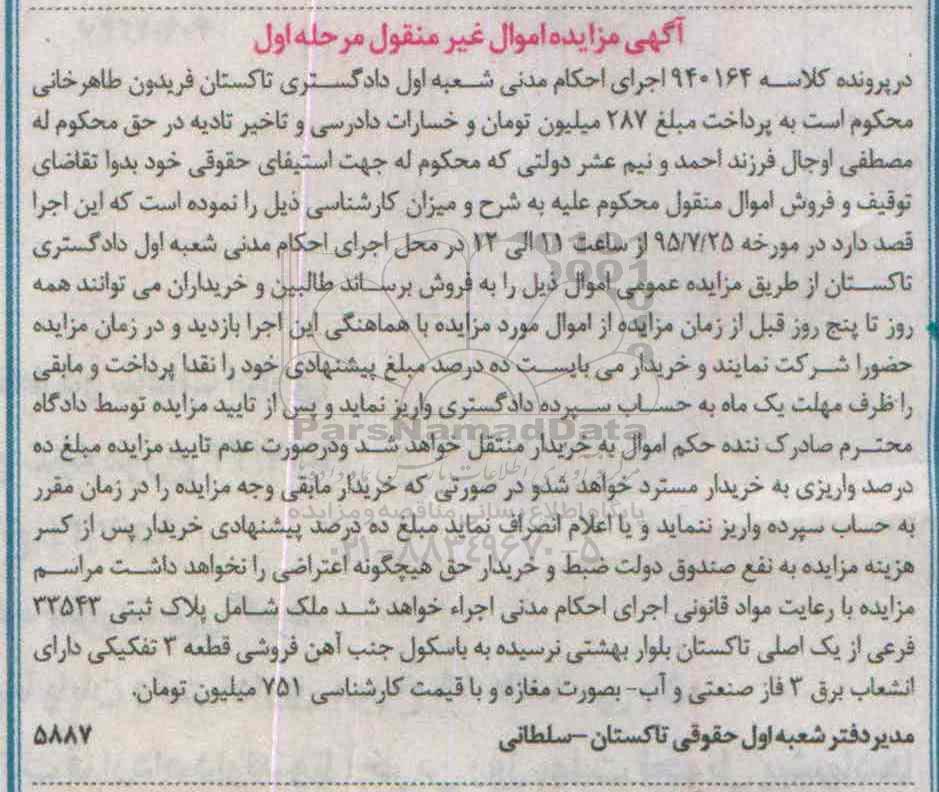 آگهی مزایده اموال غیر منقول مرحله اول
درپرونده کلاسه ۹۴۰۱۶۴ اجرای احکام مدنی شعبه اول دادگستری تاکستان فریدون طاهرخانی
محکوم است به پرداخت مبلغ ۲۸۷ میلیون تومان و خسارات دادرسی و تاخیر تادیه در حق محکوم له
مصطفی اوجال فرزند احمد و نیم عشر دولتی که محکوم له جهت استیفای حقوقی خود بدوا تقاضای
توقیف و فروش اموال منقول محکوم علیه به شرح و میزان کارشناسی ذیل را نموده است که این اجرا
قصد دارد در مورخه ۹۵/۷/۲۵ از ساعت ۱۱ الی ۱۲ در محل اجرای احکام مدنی شعبه اول دادگستری
تاکستان از طریق مزایده عمومی اموال ذیل را به فروش برساند طالبین و خریداران می توانند همه
روز تا پنج روز قبل از زمان مزایده از اموال مورد مزایده با هماهنگی این اجرا بازدید و در زمان مزایده
حضورا شرکت نمایند و خریدار می بایست ده درصد مبلغ پیشنهادی خود را نقدا پرداخت و مابقی
را ظرف مهلت یک ماه به حساب سپرده دادگستری واریز نماید و پس از تایید مزایده توسط دادگاه
ParsNamadData
محترم صادرک ننده حکم اموال به خریدار منتقل خواهد شد ودرصورت عدم تایید مزایده مبلغ ده
درصد واریزی به خریدار مسترد خواهد شدو در صورتی که خریدار مابقی وجه مزایده را در زمان مقرر
پایگاه اطلاع رسانی مناقصه و مزایده
به حساب سپرده واریز ننماید و یا اعلام انصراف نماید مبلغ ده درصد پیشنهادی خریدار پس از کسر
۰۲۱-۸۸۳۴۹۶۷۰-۵
هزینه مزایده به نفع صندوق دولت ضبط و خریدار حق هیچگونه اعتراضی را نخواهد داشت مراسم
مزایده با رعایت مواد قانونی اجرای احکام مدنی اجراء خواهد شد ملک شامل پلاک ثبتی ۳۳۵۴۳
فرعی از یک اصلی تاکستان بلوار بهشتی نرسیده به باسکول جنب آهن فروشی قطعه ۳ تفکیکی دارای
انشعاب برق ۳ فاز صنعتی و آب- بصورت مغازه و با قیمت کارشناسی ۷۵۱ میلیون تومان.
مدیر دفتر شعبه اول حقوقی تاکستان –سلطانی ۵۸۸۷